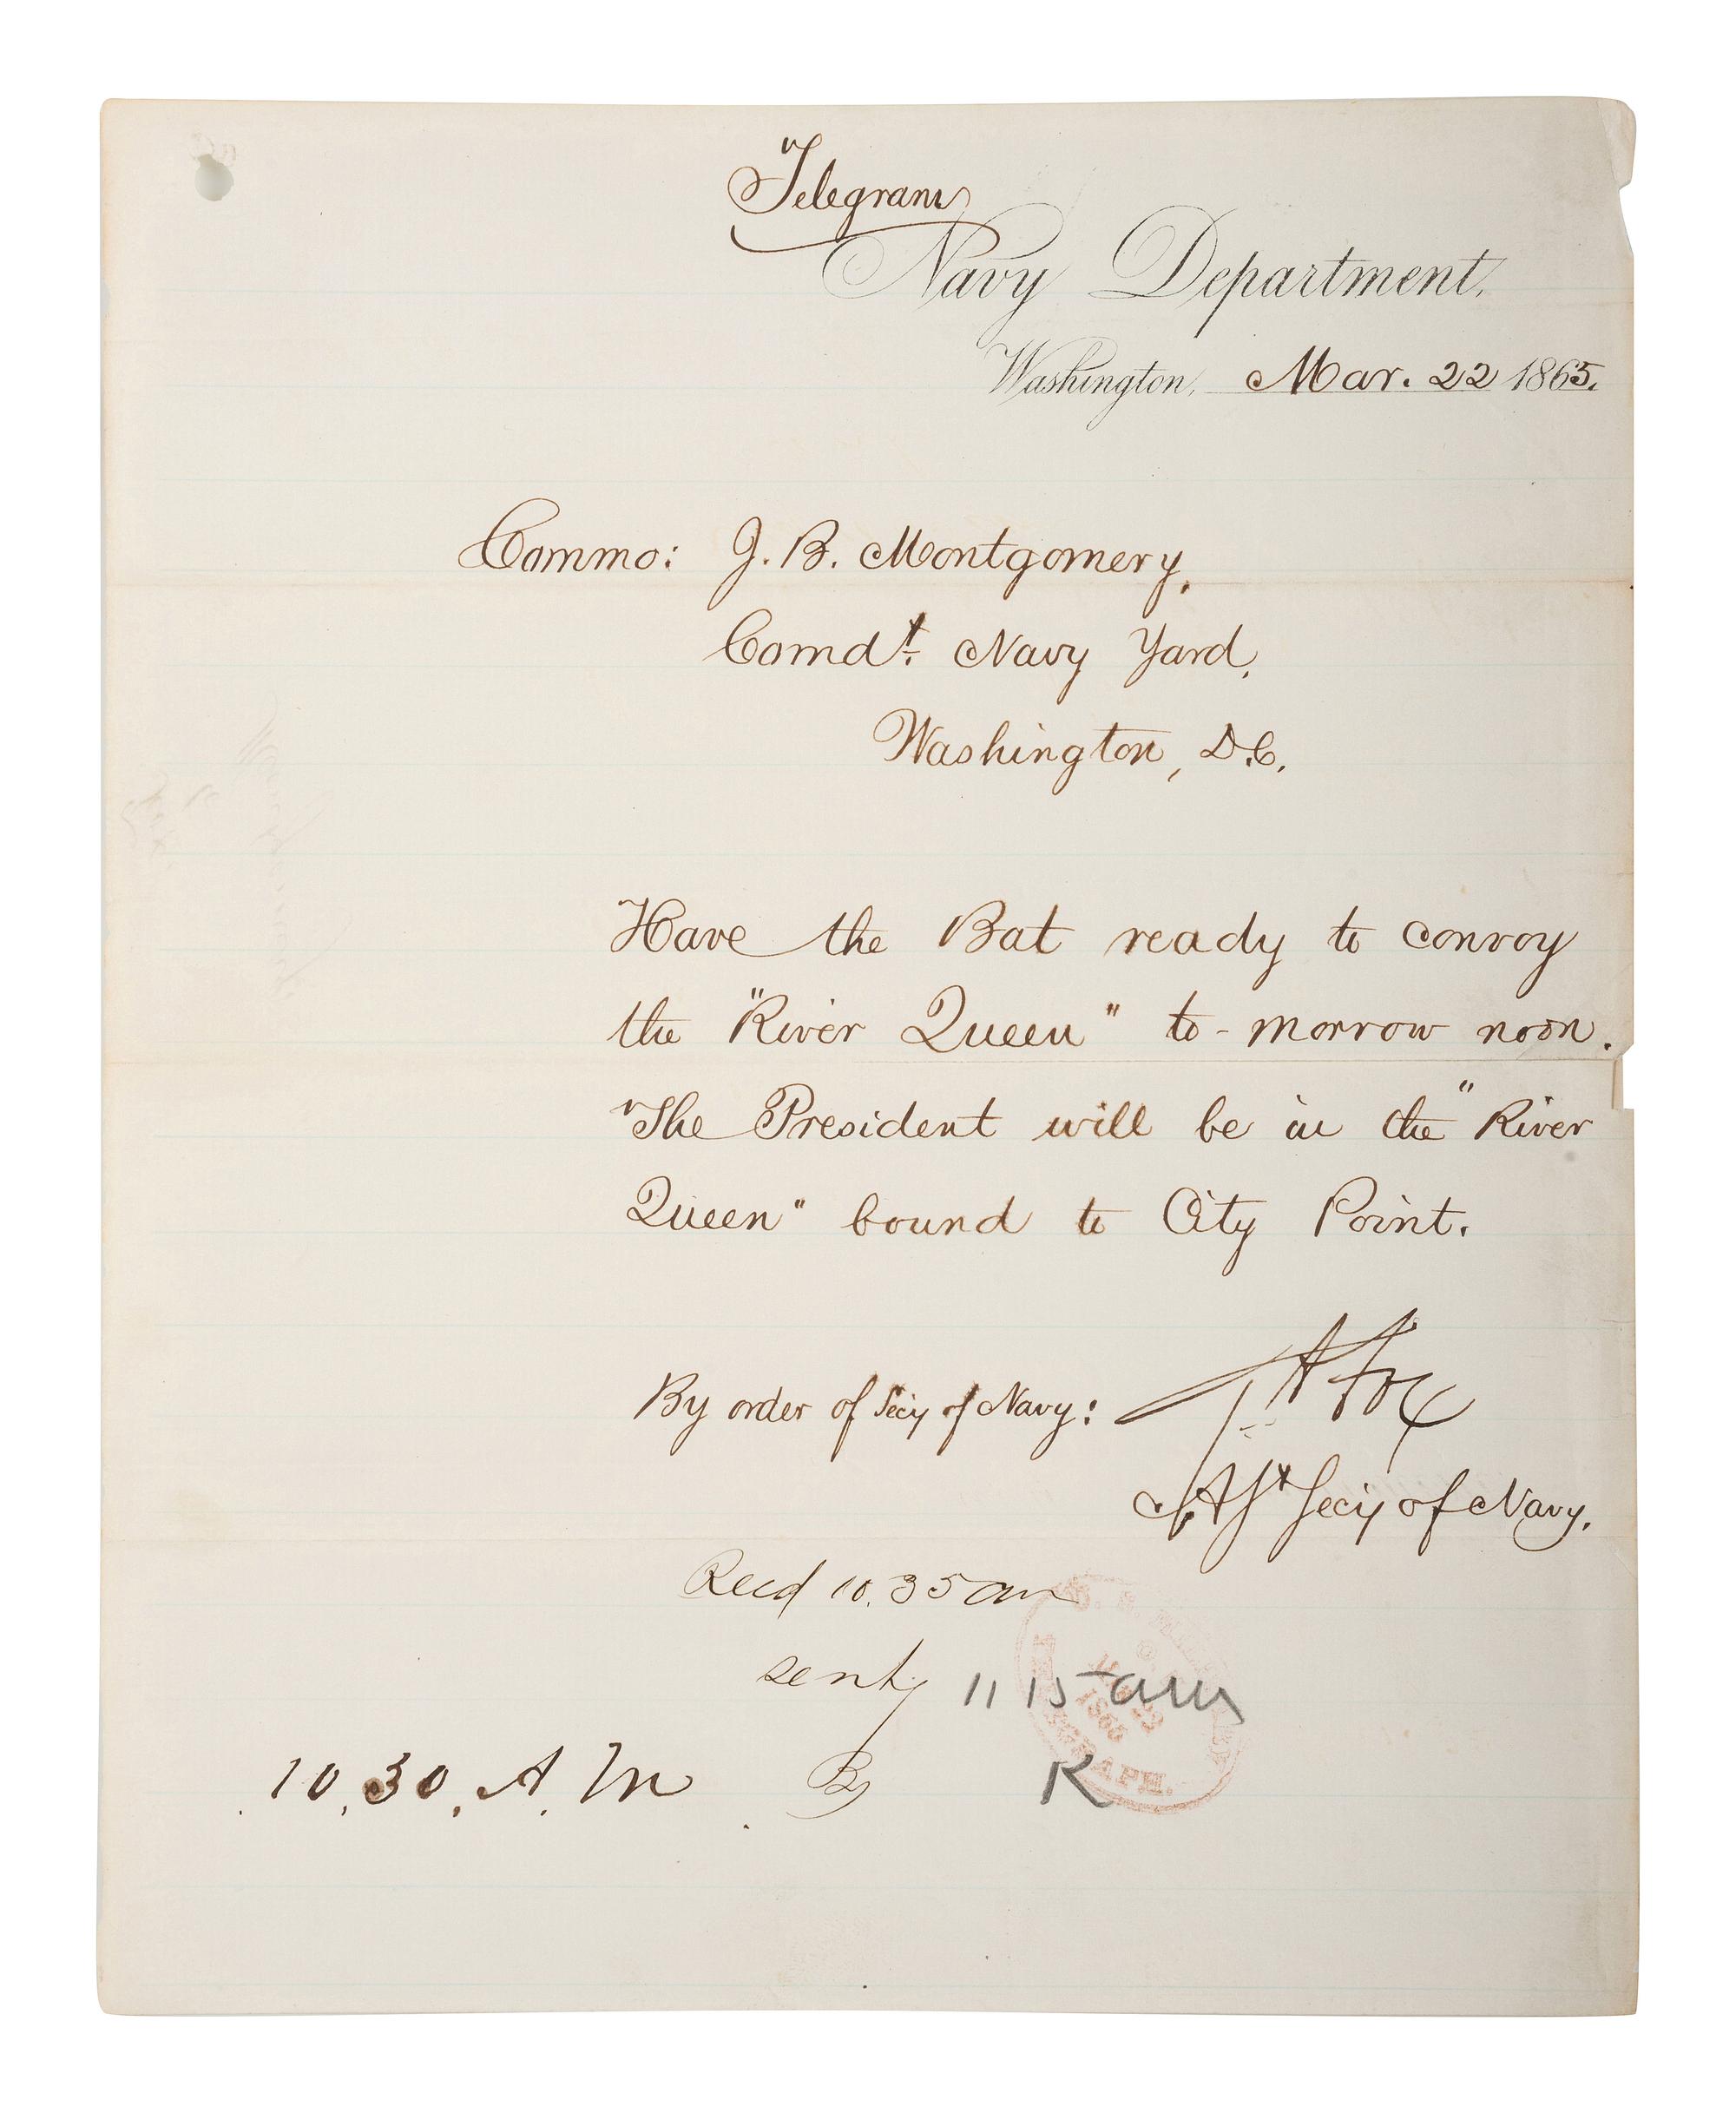 Telegram
Navy Department,
Washington, Mar. 22 1865.
Commo: J. B. Montgomery,
Comdt. Navy Yard,
Washington, D.C.
Have the Bat ready to convoy
the "River Queen" to-morrow noon.
The President will be in the "River
Queen" bound to City Point.
By order of Secy of Navy: Fox
Asst Secy of Navy.
Recd 10.35 am
sent 11 15 am
10.30. A. M By R
MAR 22
1865